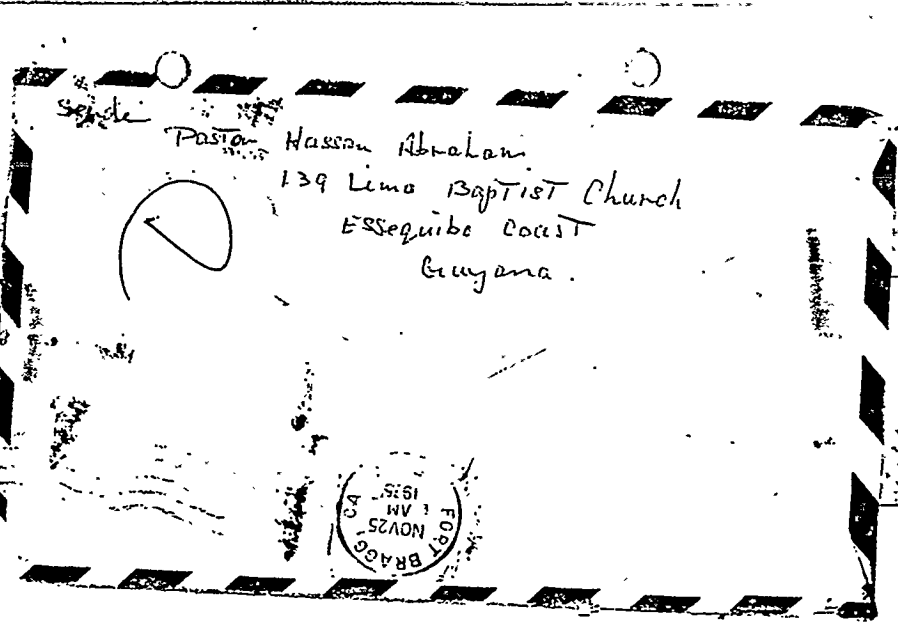 Sende
Pastor Hassan Abraham
139 Lima Baptist Church
Essequibo Coast
Guyana.
FORT BRAGG, CA
NOV25
AM